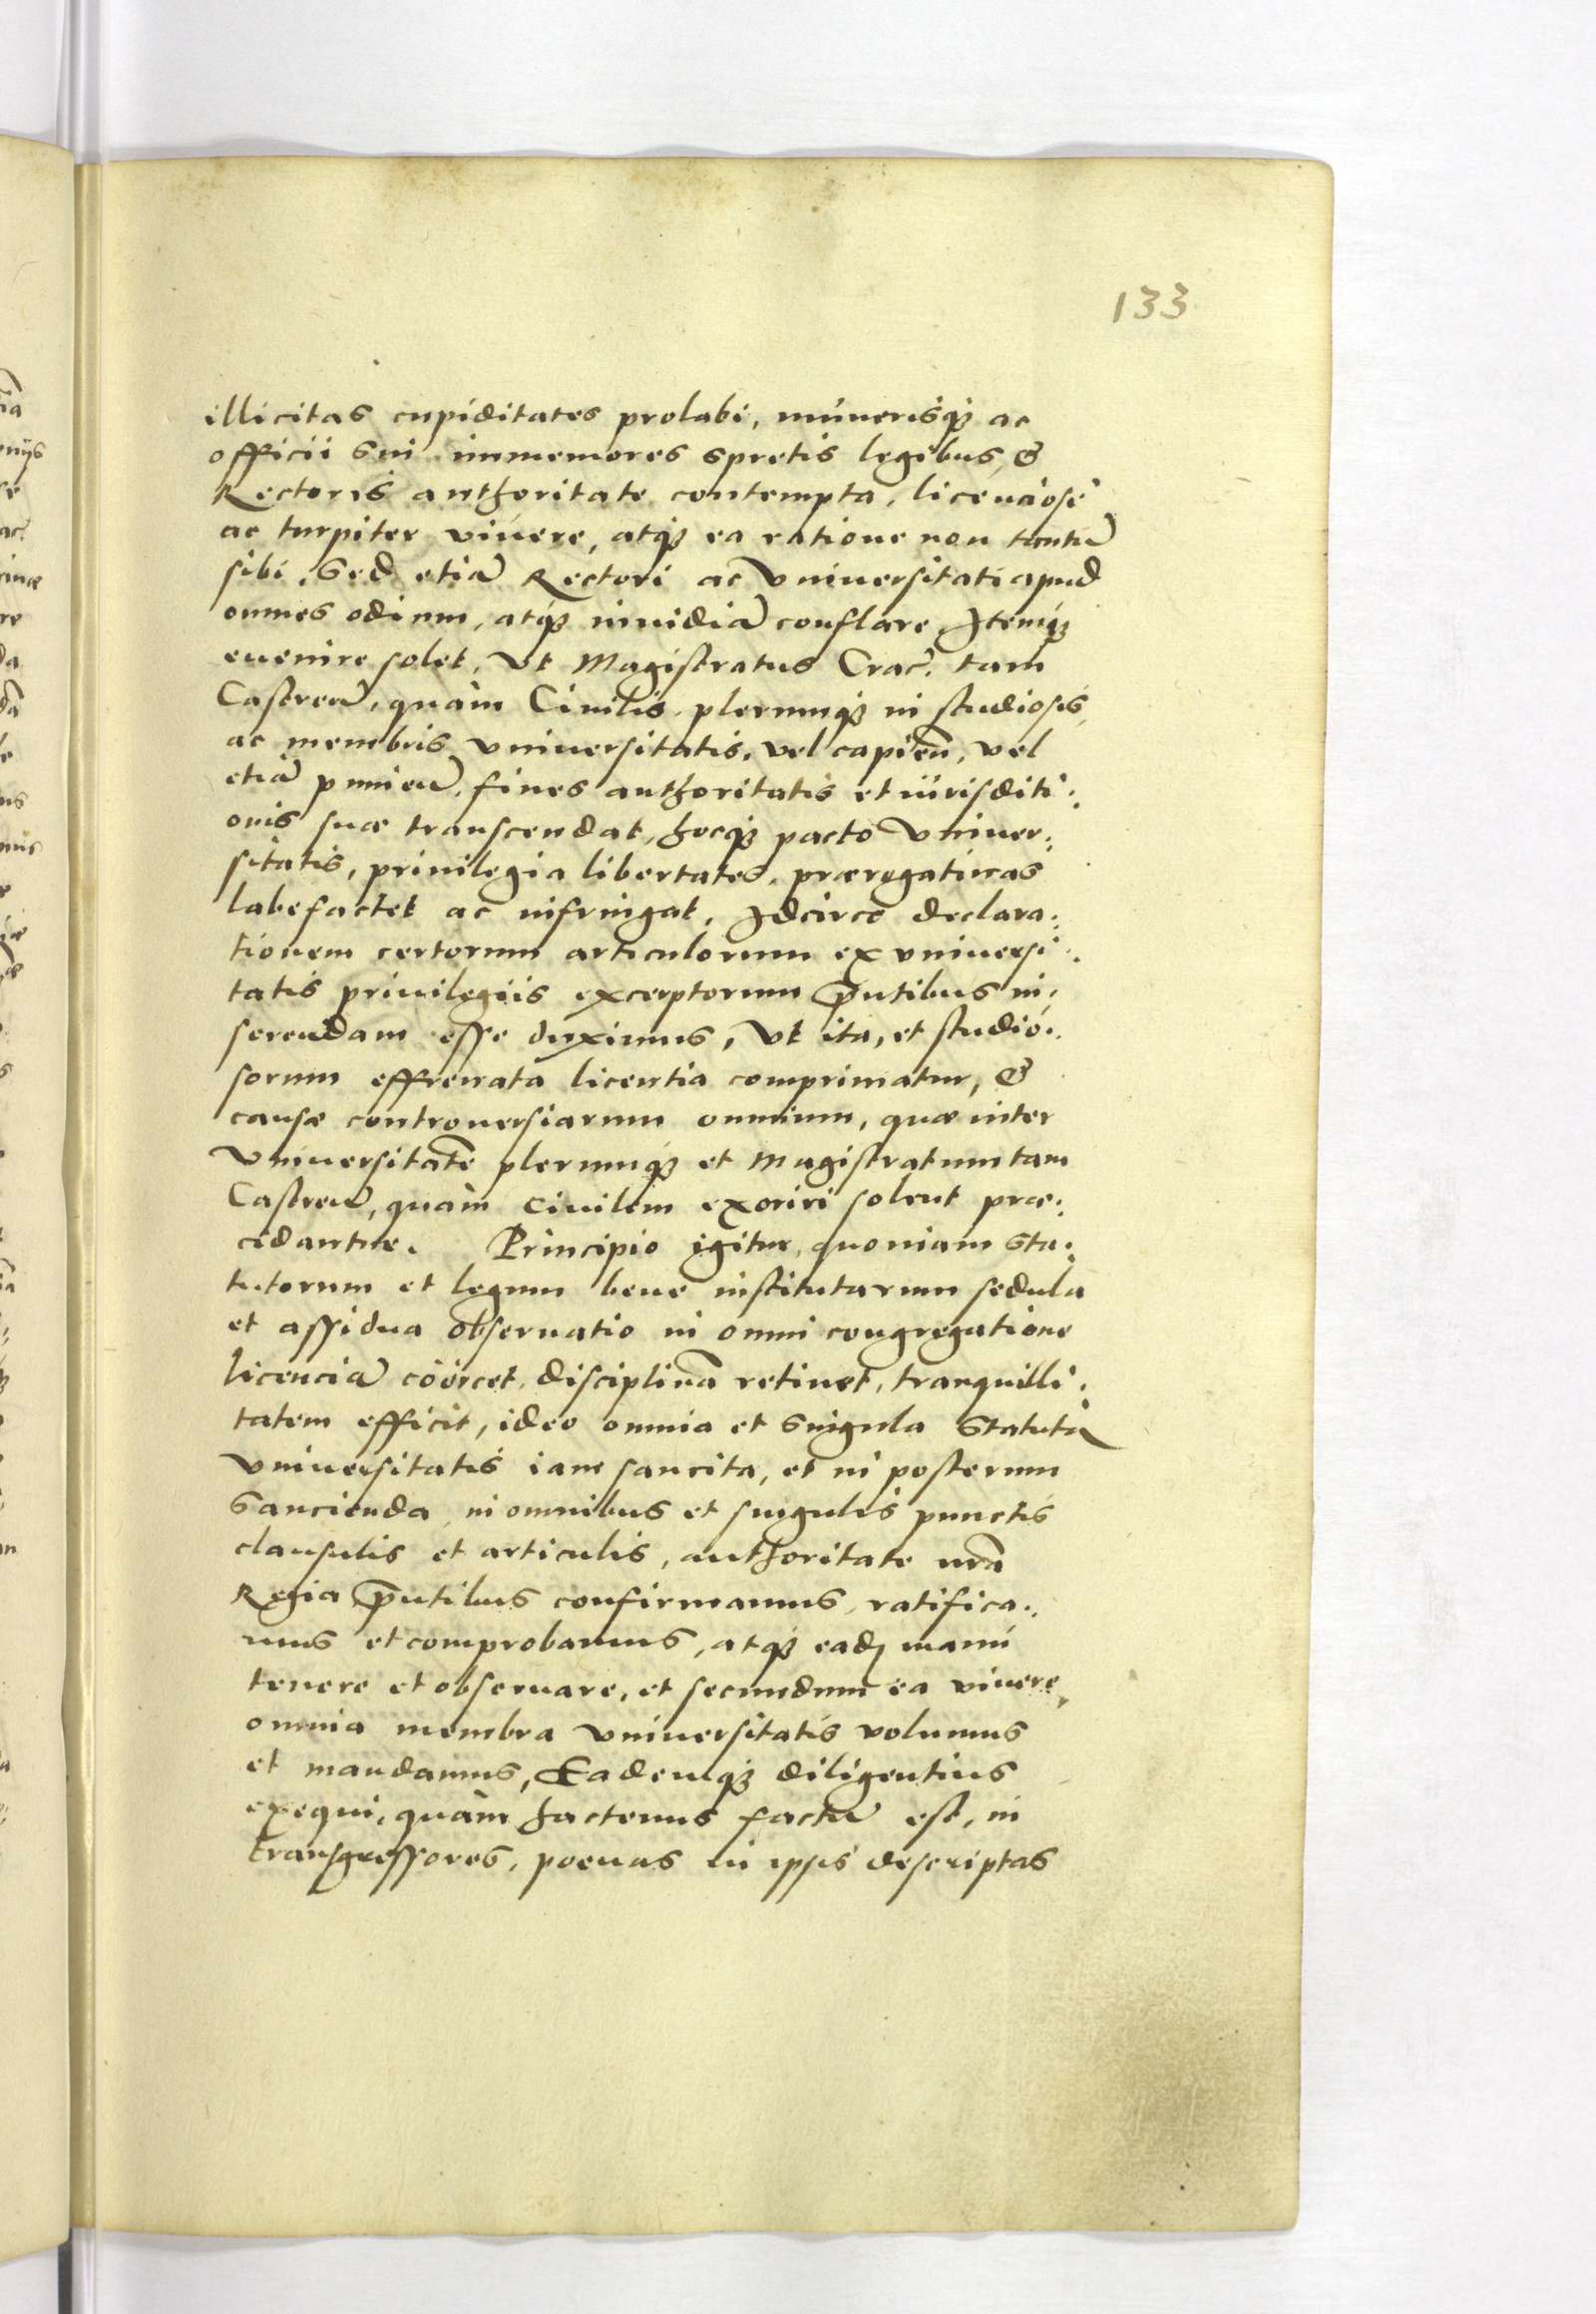 133
illicitas cupiditates prolabi, munerisq₃ ac
officii sui immemores spretis legibus, &
Rectoris authoritate contempta, licenciose
ac turpiter viuere, atq₃ ea ratione non tantũ
sibi, sed etiã Rectori ac Vniuersitati apud
omnes odium, atq₃ inuidiã conflare, Itemq₃
euenire solet, vt Magistratus Crac. tam
Castren̄, quàm Ciuilis plerumq₃ in studiosis,
ac membris vniuersitatis, vel capien̄, vel
etiã punien̄, fines authoritatis et iurisditi:
onis suæ transcendat, hocq₃ pacto Vniuer:
sitatis, priuilegia libertates, prærogatiuas
labefactet ac infringat, Idcirco declara:
tionem certorum articulorum ex vniuersi:
tatis priuilegiis excerptorum p̄ntibus in:
serendam esse duximus, Vt ita, et studio:
sorum effrenata licentia comprimatur, &
causæ controuersiarum omnium, quæ inter
Vniuersitatē plerumq₃ et Magistratum tam
Castren̄, quàm Ciuilem exoriri solent præ:
cidantur. Principio igitur, quoniam Sta:
tutorum et legum bene institutarum sedula
et assidua obseruatio in omni congregatione
licenciã coërcet, disciplinã retinet, tranquilli:
tatem efficit, ideo omnia et singula Statuta
Vniuersitatis iam sancita, et in posterum
Sancienda, in omnibus et singulis punctis
clausulis et articulis, authoritate nr̄a
Regia p̄ntibus confirmamus, ratifica:
mus et comprobamus, atq₃ eadē manu
tenere et obseruare, et secundum ea viuere,
omnia membra vniuersitatis volumus
et mandamus, Eademq₃ diligentius
exequi, quàm hactenus factũ est, in
transgressores, poenas in ipsis descriptas